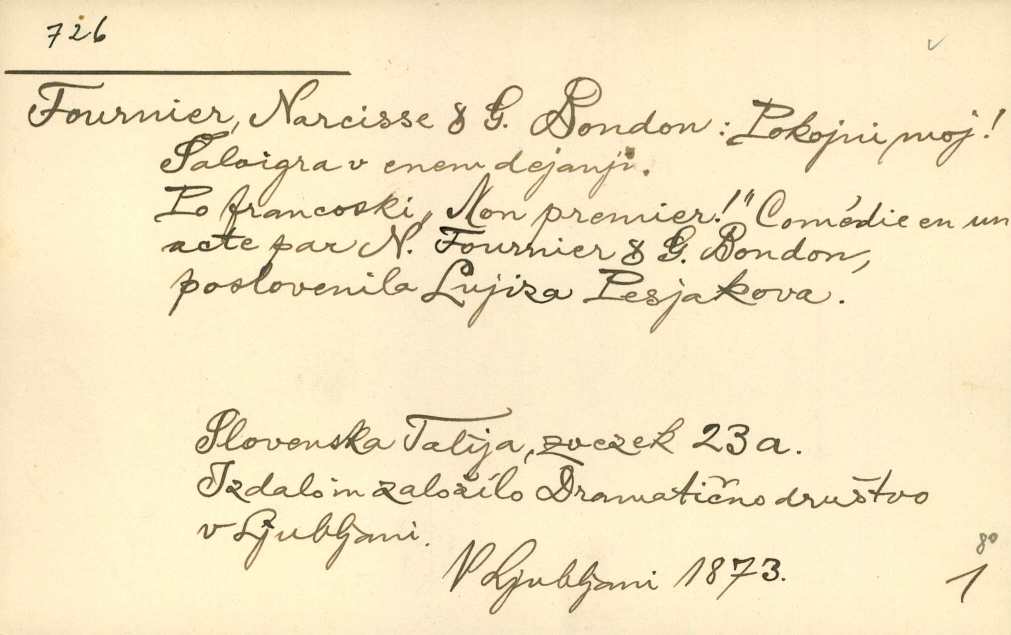 726
Fournier, Narcisse & G. Bondon: Pokojni moj!
Šaloigra v enem dejanji.
Po francoski „Mon premier!" Comédie en un
acte par N. Fournier & G. Bondon,
poslovenila Lujiza Pesjakova.
Slovenska Talija, zvezek 23a.
Izdalo in založilo Dramatično društvo
v Ljubljani.
V Ljubljani 1873.
8°
1